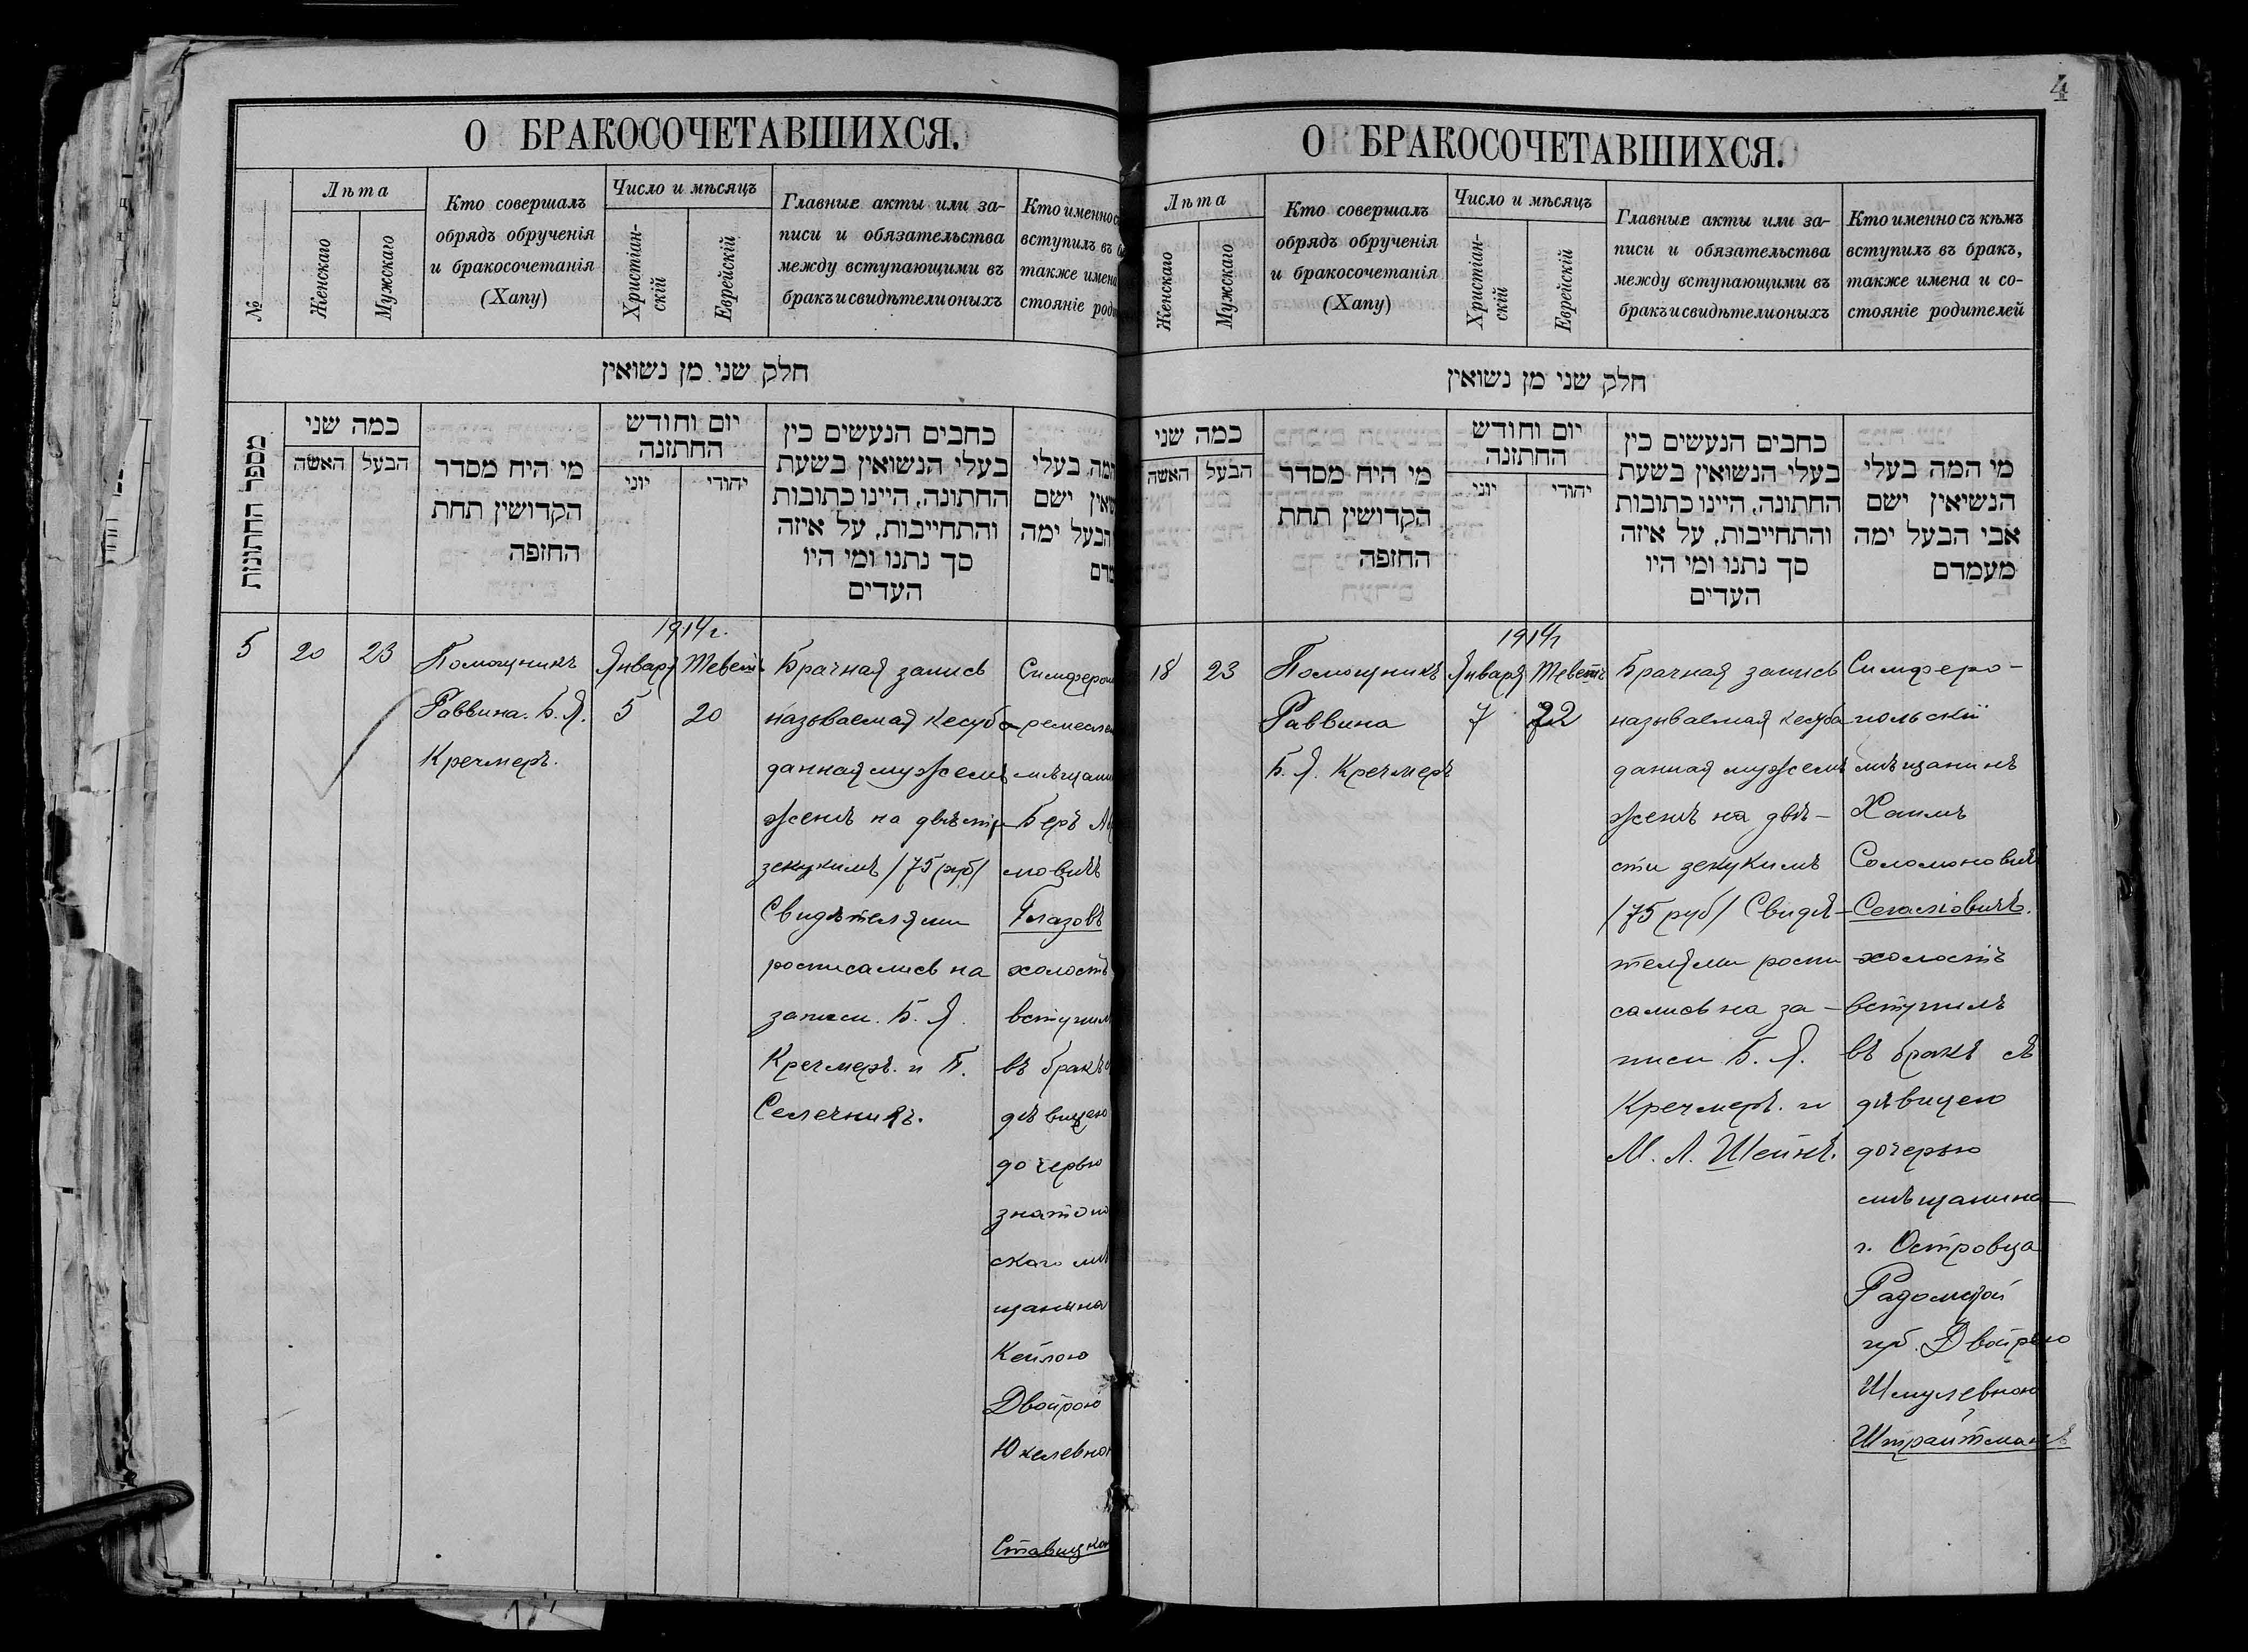 О БРАКОСОЧЕТАВШИХСЯ.
№
Лѣта
Женскаго
Мужскаго
Кто совершалъ
обрядъ обрученія
и бракосочетанія
(Хапу)
Число и мѣсяцъ
Христіан-
скій
Еврейскій
Главные акты или за-
писи и обязательства
между вступающими въ
бракъ и свидѣтели оныхъ
Кто именно с
вступилъ въ б
также имена
стояніе род
חלק שני מן נשואין
מספר החתונות
כמה שני
האשה
הבעל
מי היח מסדר
הקדושין תחת
החזפה
יום וחודש
החתזנה
יוני
יהודי
כחבים הנעשים כין
בעלי הנשואין בשעת
החתונה, היינו כתובות
והתחייבות, על איזה
סך נתנו ומי היו
העדים
ומה בעלי
שאין ישם
הבעל ימה
מדם
5
20
23
Помощникъ
Раввина. Б. Я.
Кречмеръ.
1914 г.
Января
5
Теветъ
20
Брачная запись
называемая кесуба
данная мужемъ
женѣ на двѣсти
зекукимъ /75 руб/
Свидѣтелями
росписались на
записи. Б. Я.
Кречмеръ. и П.
Селечникъ.
Симфероп
ремеслен
мѣщани
Беръ А
мовичъ
Глазовъ
холостъ
вступилъ
въ бракъ с
дѣвицею
дочерью
знатоп
скаго мѣ
щанина
Кейлою
Двойрою
Юкелевною
Ставицкою
4
О БРАКОСОЧЕТАВШИХСЯ.
Лѣта
Женскаго
Мужскаго
Кто совершалъ
обрядъ обрученія
и бракосочетанія
(Хапу)
Число и мѣсяцъ
Христіан-
скій
Еврейскій
Главные акты или за-
писи и обязательства
между вступающими въ
бракъ и свидѣтели оныхъ
Кто именно съ кѣмъ
вступилъ въ бракъ,
также имена и со-
стояніе родителей
חלק שני מן נשואין
כמה שני
האשה
הבעל
מי היח מסדר
הקדושין תחת
החזפה
יום וחודש
החתזנה
יוני
יהודי
כחבים הנעשים כין
בעלי הנשואין בשעת
החתונה, היינו כתובות
והתחייבות, על איזה
סך נתנו ומי היו
העדים
מי המה בעלי
הנשיאין ישם
אבי הבעל ימה
מעמדם
18
23
Помощникъ
Раввина
Б. Я. Кречмеръ
1914 г
Января
7
Теветъ
22
Брачная запись
называемая кесуба
данная мужемъ
женѣ на двѣ-
сти зекукимъ
/75 руб/ Свидѣ-
телями роспи
сались на за-
писи Б. Я.
Кречмеръ. и
М. Л. Шейнъ.
Симферо-
польскій
мѣщанинъ
Хаимъ
Соломоновичъ
Сегаловичъ.
холостъ
вступилъ
въ бракъ съ
дѣвицею
дочерью
мѣщанина
г. Островца
Радомской
губ. Двойрею
Шмулевною
Штрайтманъ